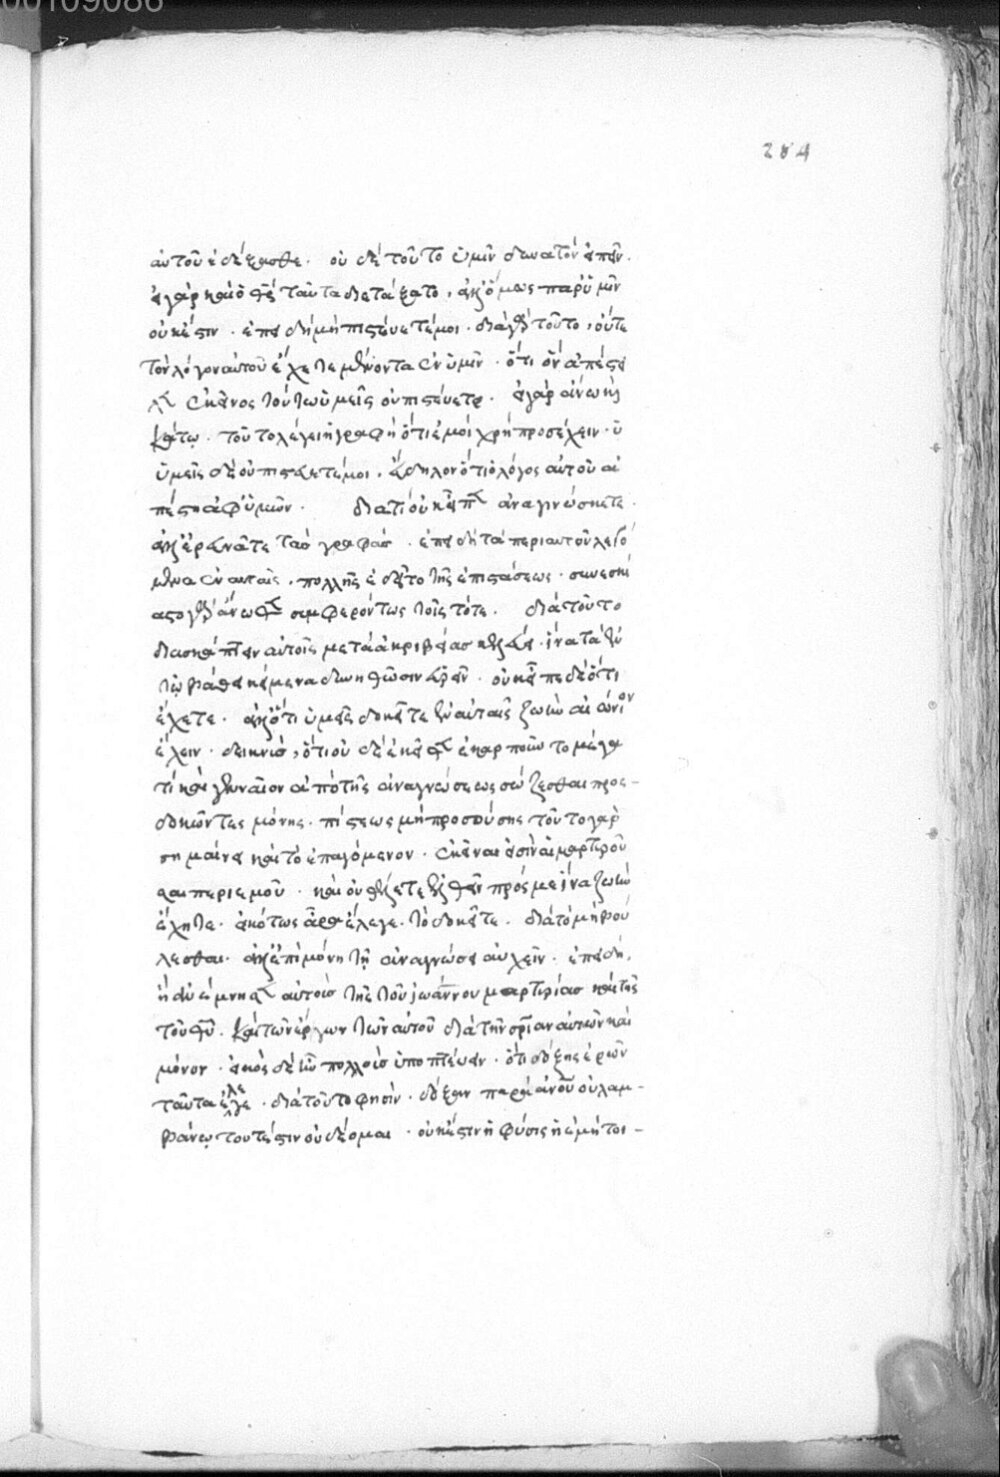 00109086
284
αὐτοῦ ἐδέξασθε. οὐ δὲ τοῦτο ὑμῖν δυνατὸν εἰπεῖν.
εἰ γὰρ καὶ ὁ θς ταῦτα διετάξατο, ἀλλ' ὅμως παρ' ὑμῖν
οὐκ ἔστιν. ἐπειδὴ μὴ πιστεύετέ μοι. διὰ γὰρ τοῦτο, οὔτε
τὸν λόγον αὐτοῦ ἔχετε μένοντα ἐν ὑμῖν. ὅτι ὃν ἀπέστει
λεν ἐκεῖνος τούτω ὑμεῖς οὐ πιστεύετε. εἰ γὰρ ἄνω καὶ
κάτω. τοῦτο λέγει ἡ γραφὴ ὅτι ἐμοὶ χρὴ προσέχειν.
ὑμεῖς δὲ οὐ πιστεύετέ μοι. εὔδηλον ὅτι ὁ λόγος αὐτοῦ ἀ
πέστη ἀφ' ὑμῶν. διατί οὐκ εἶπεν ἀναγινώσκετε.
ἀλλ' ἐρευνᾶτε τὰς γραφάς. ἐπειδὴ τὰ περὶ αὐτοῦ λεγό
μενα ἐν αὐταῖς, πολλῆς ἐδεῖτο τῆς ἐπιστάσεως. συνεσκί
αστο γὰρ ἄνωθεν συμφερόντως τοῖς τότε. διὰ τοῦτο
διασκάπτειν αὐτοῖς μετὰ ἀκριβείας κελεύει. ἵνα τὰ ἐν
τῷ βάθει κείμενα δυνηθῶσιν εὑρεῖν. οὐκ εἶπε δὲ ὅτι
ἔχετε. ἀλλ' ὅτι ὑμεῖς δοκεῖτε ἐν αὐταῖς ζωὴν αἰώνιον
ἔχειν. δεικνὺς, ὅτι οὐδὲ ἐκεῖθεν ἐκαρποῦντο μέγα
τί καὶ γενναῖον ἀπὸ τῆς ἀναγνώσεως σώζεσθαι προς-
δοκῶντες μόνης. πίστεως μὴ προσούσης τοῦτο γὰρ
σημαίνει καὶ τὸ ἐπαγόμενον. ἐκεῖναι εἰσὶν αἱ μαρτυροῦ
σαι περὶ ἐμοῦ. καὶ οὐ θέλετε ἐλθεῖν πρός με ἵνα ζωὴν
ἔχητε. εἰκότως ἄρα ἔλεγε. τὸ δοκεῖτε. διὰ τὸ μὴ βού
λεσθαι. ἀλλ' ἐπὶ μόνη τῇ ἀναγνώσει αὐχεῖν. ἐπειδὴ,
ἡ ἀνέμνησεν αὐτοὺς τῆς τοῦ ἰωάννου μαρτυρίας καὶ τῆς
τοῦ θυ. καὶ τῶν ἔργων τῶν αὐτοῦ διὰ τὴν σρίαν αὐτῶν καὶ
μόνον. εἰκὸς δὲ ἦν πολλοὺς ὑποπτεύειν. ὅτι δόξης ἐρῶν
ταῦτα ἔλεγε. διὰ τοῦτο φησὶν. δόξαν παρὰ ἀνου οὐ λαμ-
βάνω, τουτέστιν οὐ δέομαι. οὐκ ἔστιν ἡ φύσις ἡ ἐμὴ τοι-